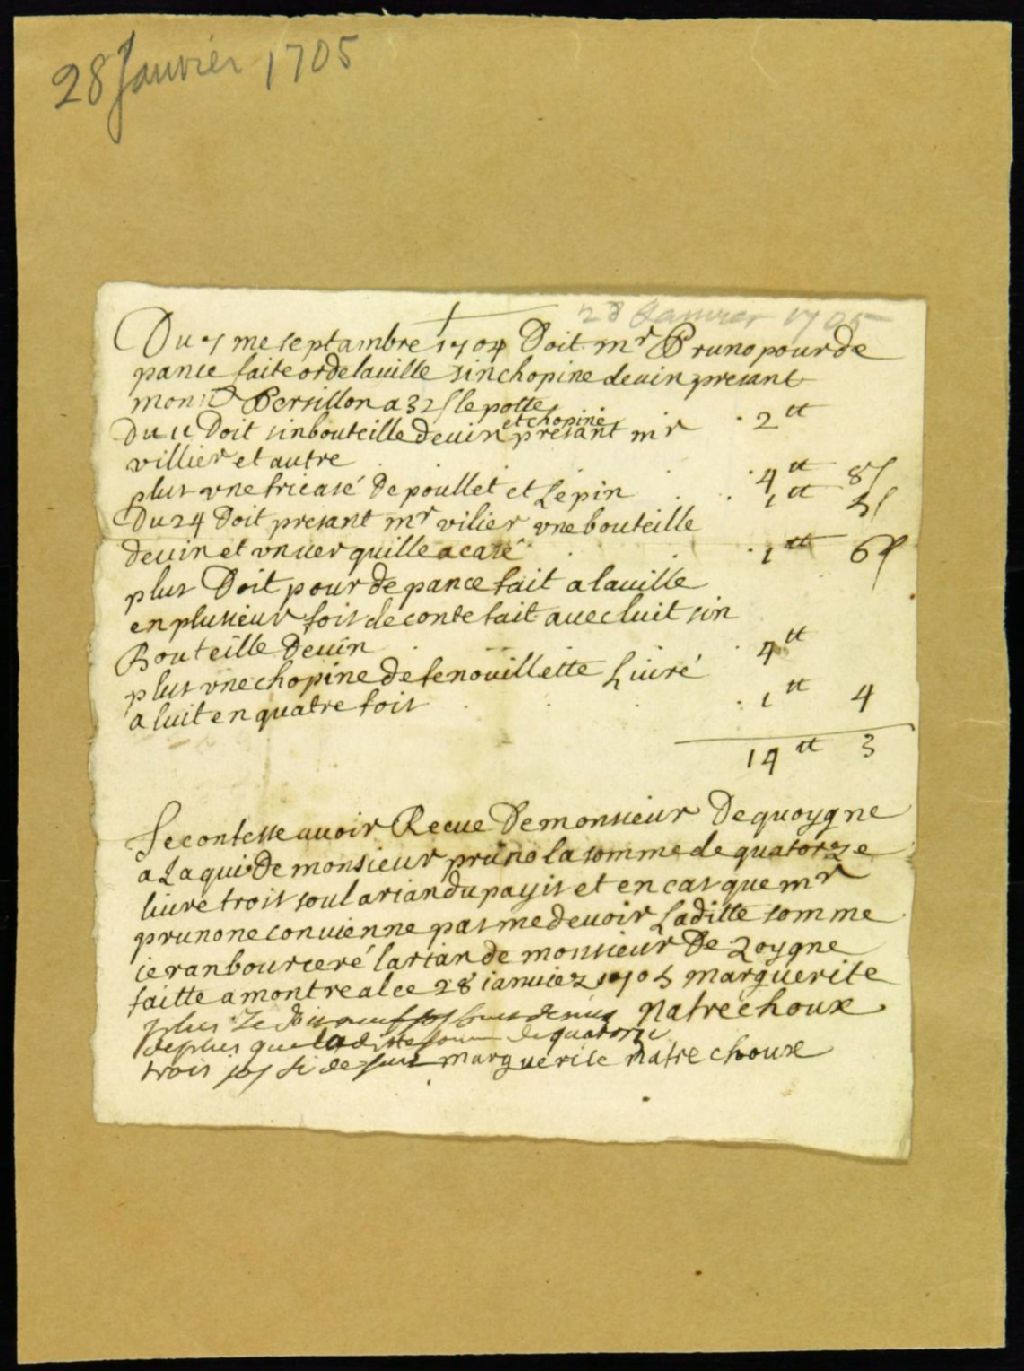 28 Janvier 1705
28 Janvier 1705
Du 7 me septambre 1704 Doit mr Pruno pour de
pance faite or de la uille sin chopine de uin presant
mon Persillon a 32 s le potte 2 tt
Du 11 Doit sin bouteille de uin et chopine presant mr
villier et autre 4 tt 8 s
plus vne fricasé de poullet et Lepin 1 tt 5 s
Du 24 Doit presant mr vilier vne bouteille
de uin et vn uer quille a casé 1 tt 6 s
plus Doit pour depance fait a la uille
en plusieur fois de conte fait auec luit sin
Bouteille de uin 4 tt
plus vne chopine de fenouillette Liuré
a luit en quatre fois 1 tt 4
14 tt 3
Je confesse auoir Recue De monsieur De quoygne
a Laqui De monsieur pruno la somme de quatorze
liure trois soul arian du payis et en cas que mr
pruno ne conuienne pas me deuoir Laditte somme
ie ranbourceré larian de monsieur De Zoygne
faitte a montreal ce 28 ianuiez 1705 marguerite
plus Je natrechoux
de plus que laditte somme de quatorze
trois marguerite natre choux